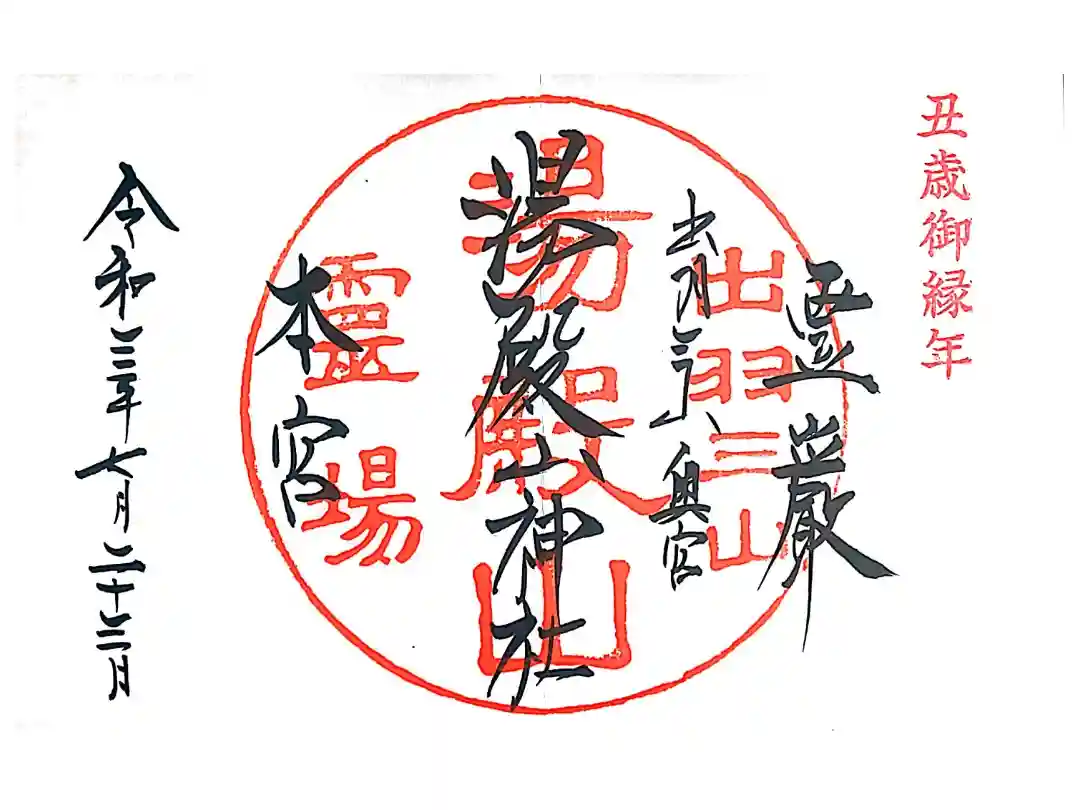 丑歳御縁年
霊巌
出羽三山奥宮
出羽三山
湯殿山神社
湯殿山
本宮
靈場
令和三年七月二十三日